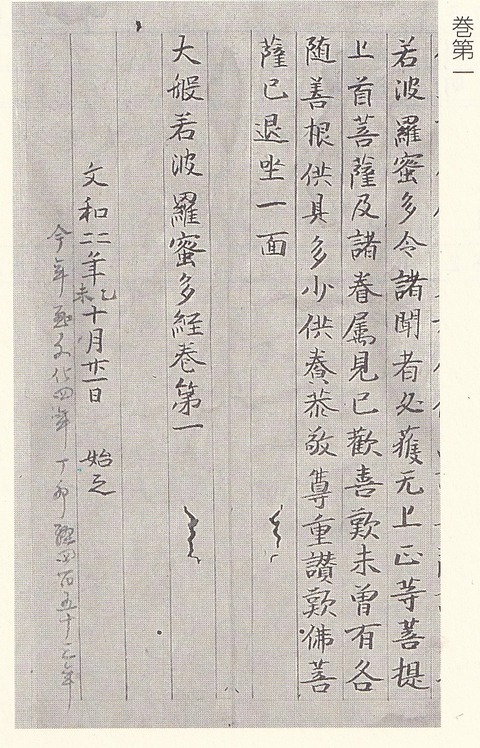 巻第一
若波羅蜜多令諸聞者必獲无上正等菩提
上首菩薩及諸眷属見已歡喜歎未曾有各
随善根供具多少供養恭敬尊重讃歎佛菩
薩已退坐一面
大般若波羅蜜多経巻第一
文和二二年乙未十月廿一日 始之
今年至文化四年 丁卯 歴四百五十三年